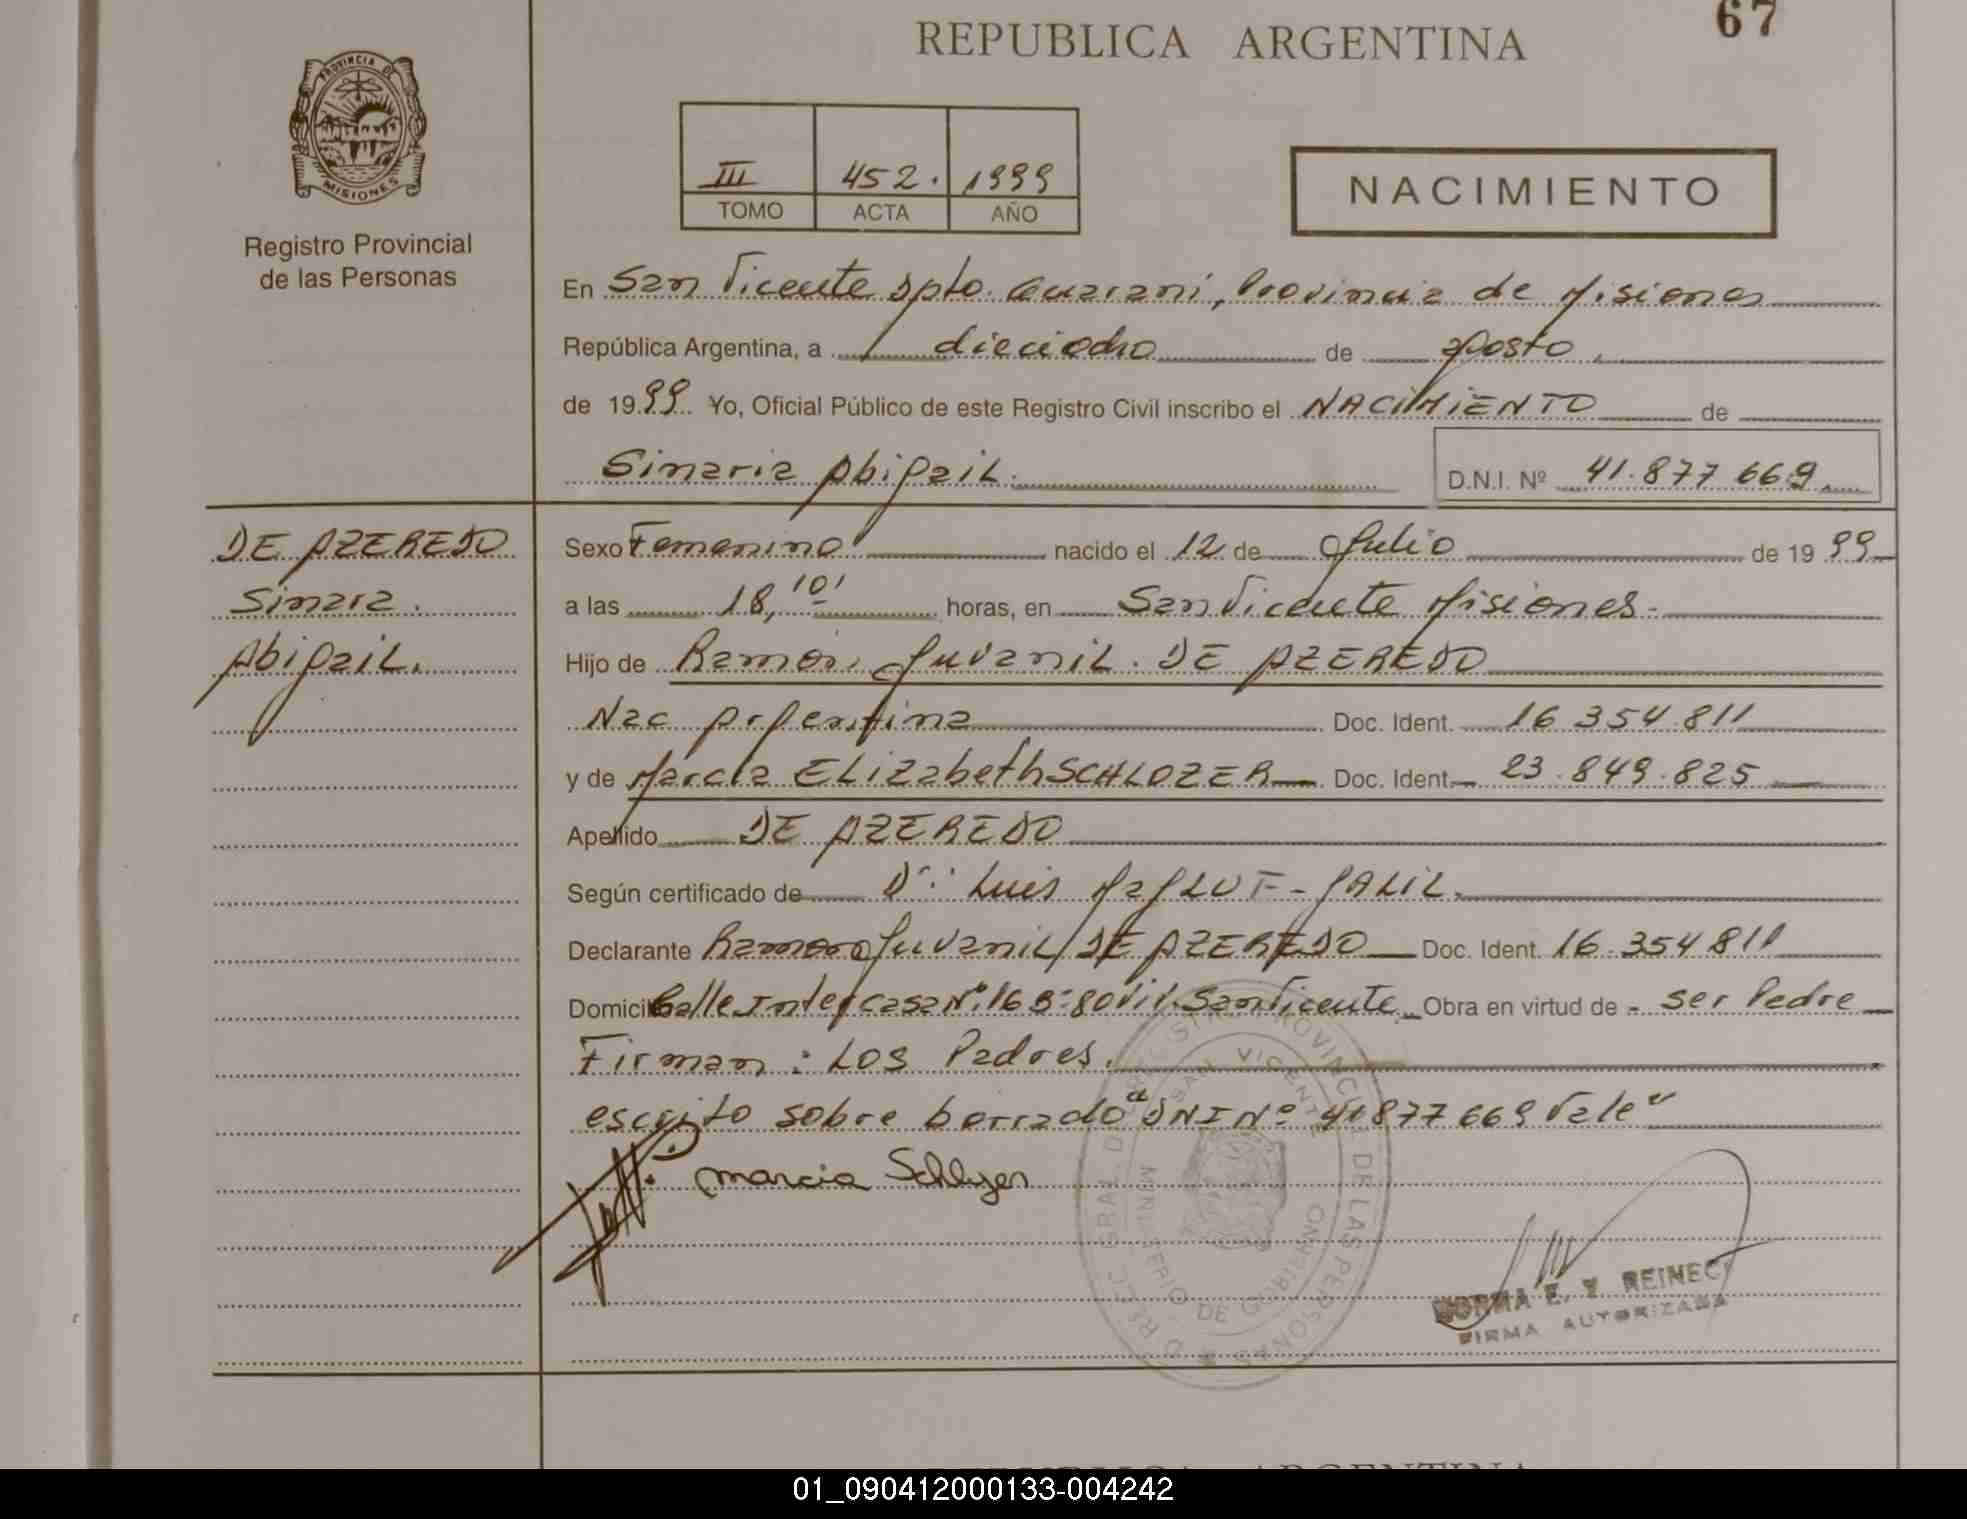 REPUBLICA ARGENTINA
67
PROVINCIA DE
MISIONES
Registro Provincial
de las Personas
III 452. 1999
TOMO ACTA AÑO
NACIMIENTO
En San Vicente Dpto. Guarani, Provincia de Misiones
República Argentina, a dieciocho de agosto.
de 1999 Yo, Oficial Público de este Registro Civil inscribo el NACIMIENTO de
Abigail. D.N.I. Nº 41.877 669.
DE AZEREDO
Sinara
Abigail.
Sexo Femenino nacido el 12 de Julio de 1999
a las 18,10' horas, en San Vicente Misiones.
Hijo de Ramón Juvenil. DE AZEREDO
Nac Argentina Doc. Ident. 16 354 811
y de Marcia ELizabeth SCHLOZER Doc. Ident. 23.849.825
Apellido DE AZEREDO
Según certificado de Dr. Luis
Declarante Ramon Juvenil DE AZEREDO Doc. Ident. 16.354 811
Calle San Vicente Obra en virtud de - ser Padre
Firman: Los Padres.
escrito sobre borrado "DNI Nº 41877669 Vale"
marcia
SAN VICENTE
MINISTERIO DE GOBIERNO
PROVINCIAL DE LAS PERSONAS
NORMA E.
FIRMA AUTORIZADA
REPUBLICA ARGENTINA
01_090412000133-004242